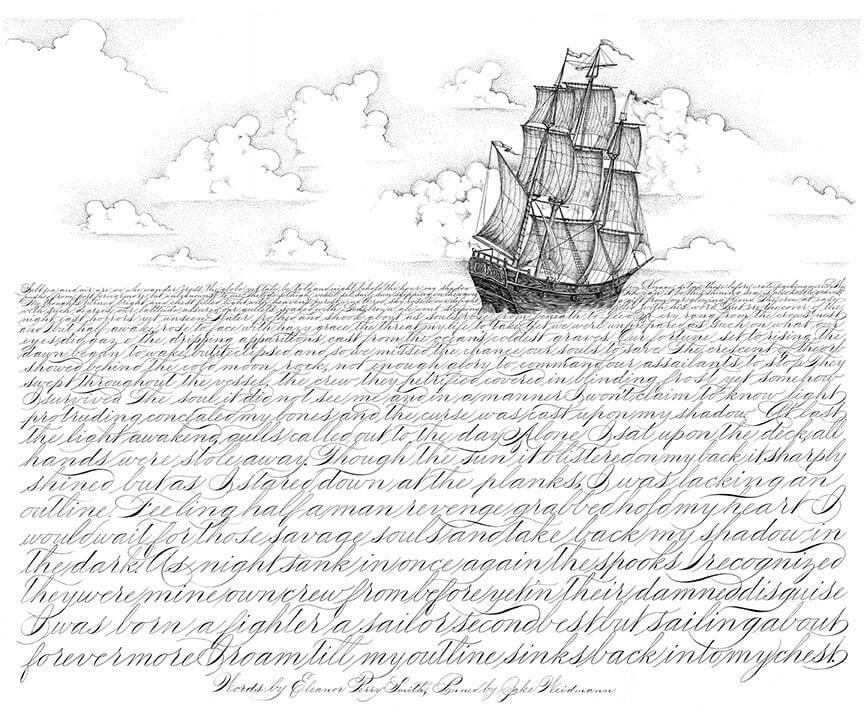 with such
night cast frost the unseen enter there and shone about as souls
and but half awake, rose to face with hazy grace the threat my life to take. Yet we were unprepared as such on what our
eyes did gaze the dripping apparitions cast from the oceans coldest graves. Our fortune set to rising the
dawn began to wake, but eclipsed and so we missed the chance our souls to save. The crescent of the orb
showed behind the cold moon rock, not enough glory to command our assailants to stop. They
swept throughout the vessel, the crew they petrified covered in blinding frost yet somehow
I survived. The soul, it did not see me and in a manner I won't claim to know, light
protruding concealed my bones and the curse was cast upon my shadow. At last
the light awakening, gulls called out to the day. Alone I sat upon the deck, all
hands were stole away. Though the sun, it blistered on my back, it sharply
shined but as I stared down at the planks, I was lacking an
outline. Feeling half a man revenge grabbed hold my heart I
would wait for those savage souls and take back my shadow in
the dark. As night sank in once again the spooks I recognized
they were mine own crew from before yet in their damned disguise
I was born a fighter a sailor second best but sailing about
forevermore I roam till my outline sinks back into my chest.
Words by Eleanor Perry Smith, Penned by Jake Weidmann